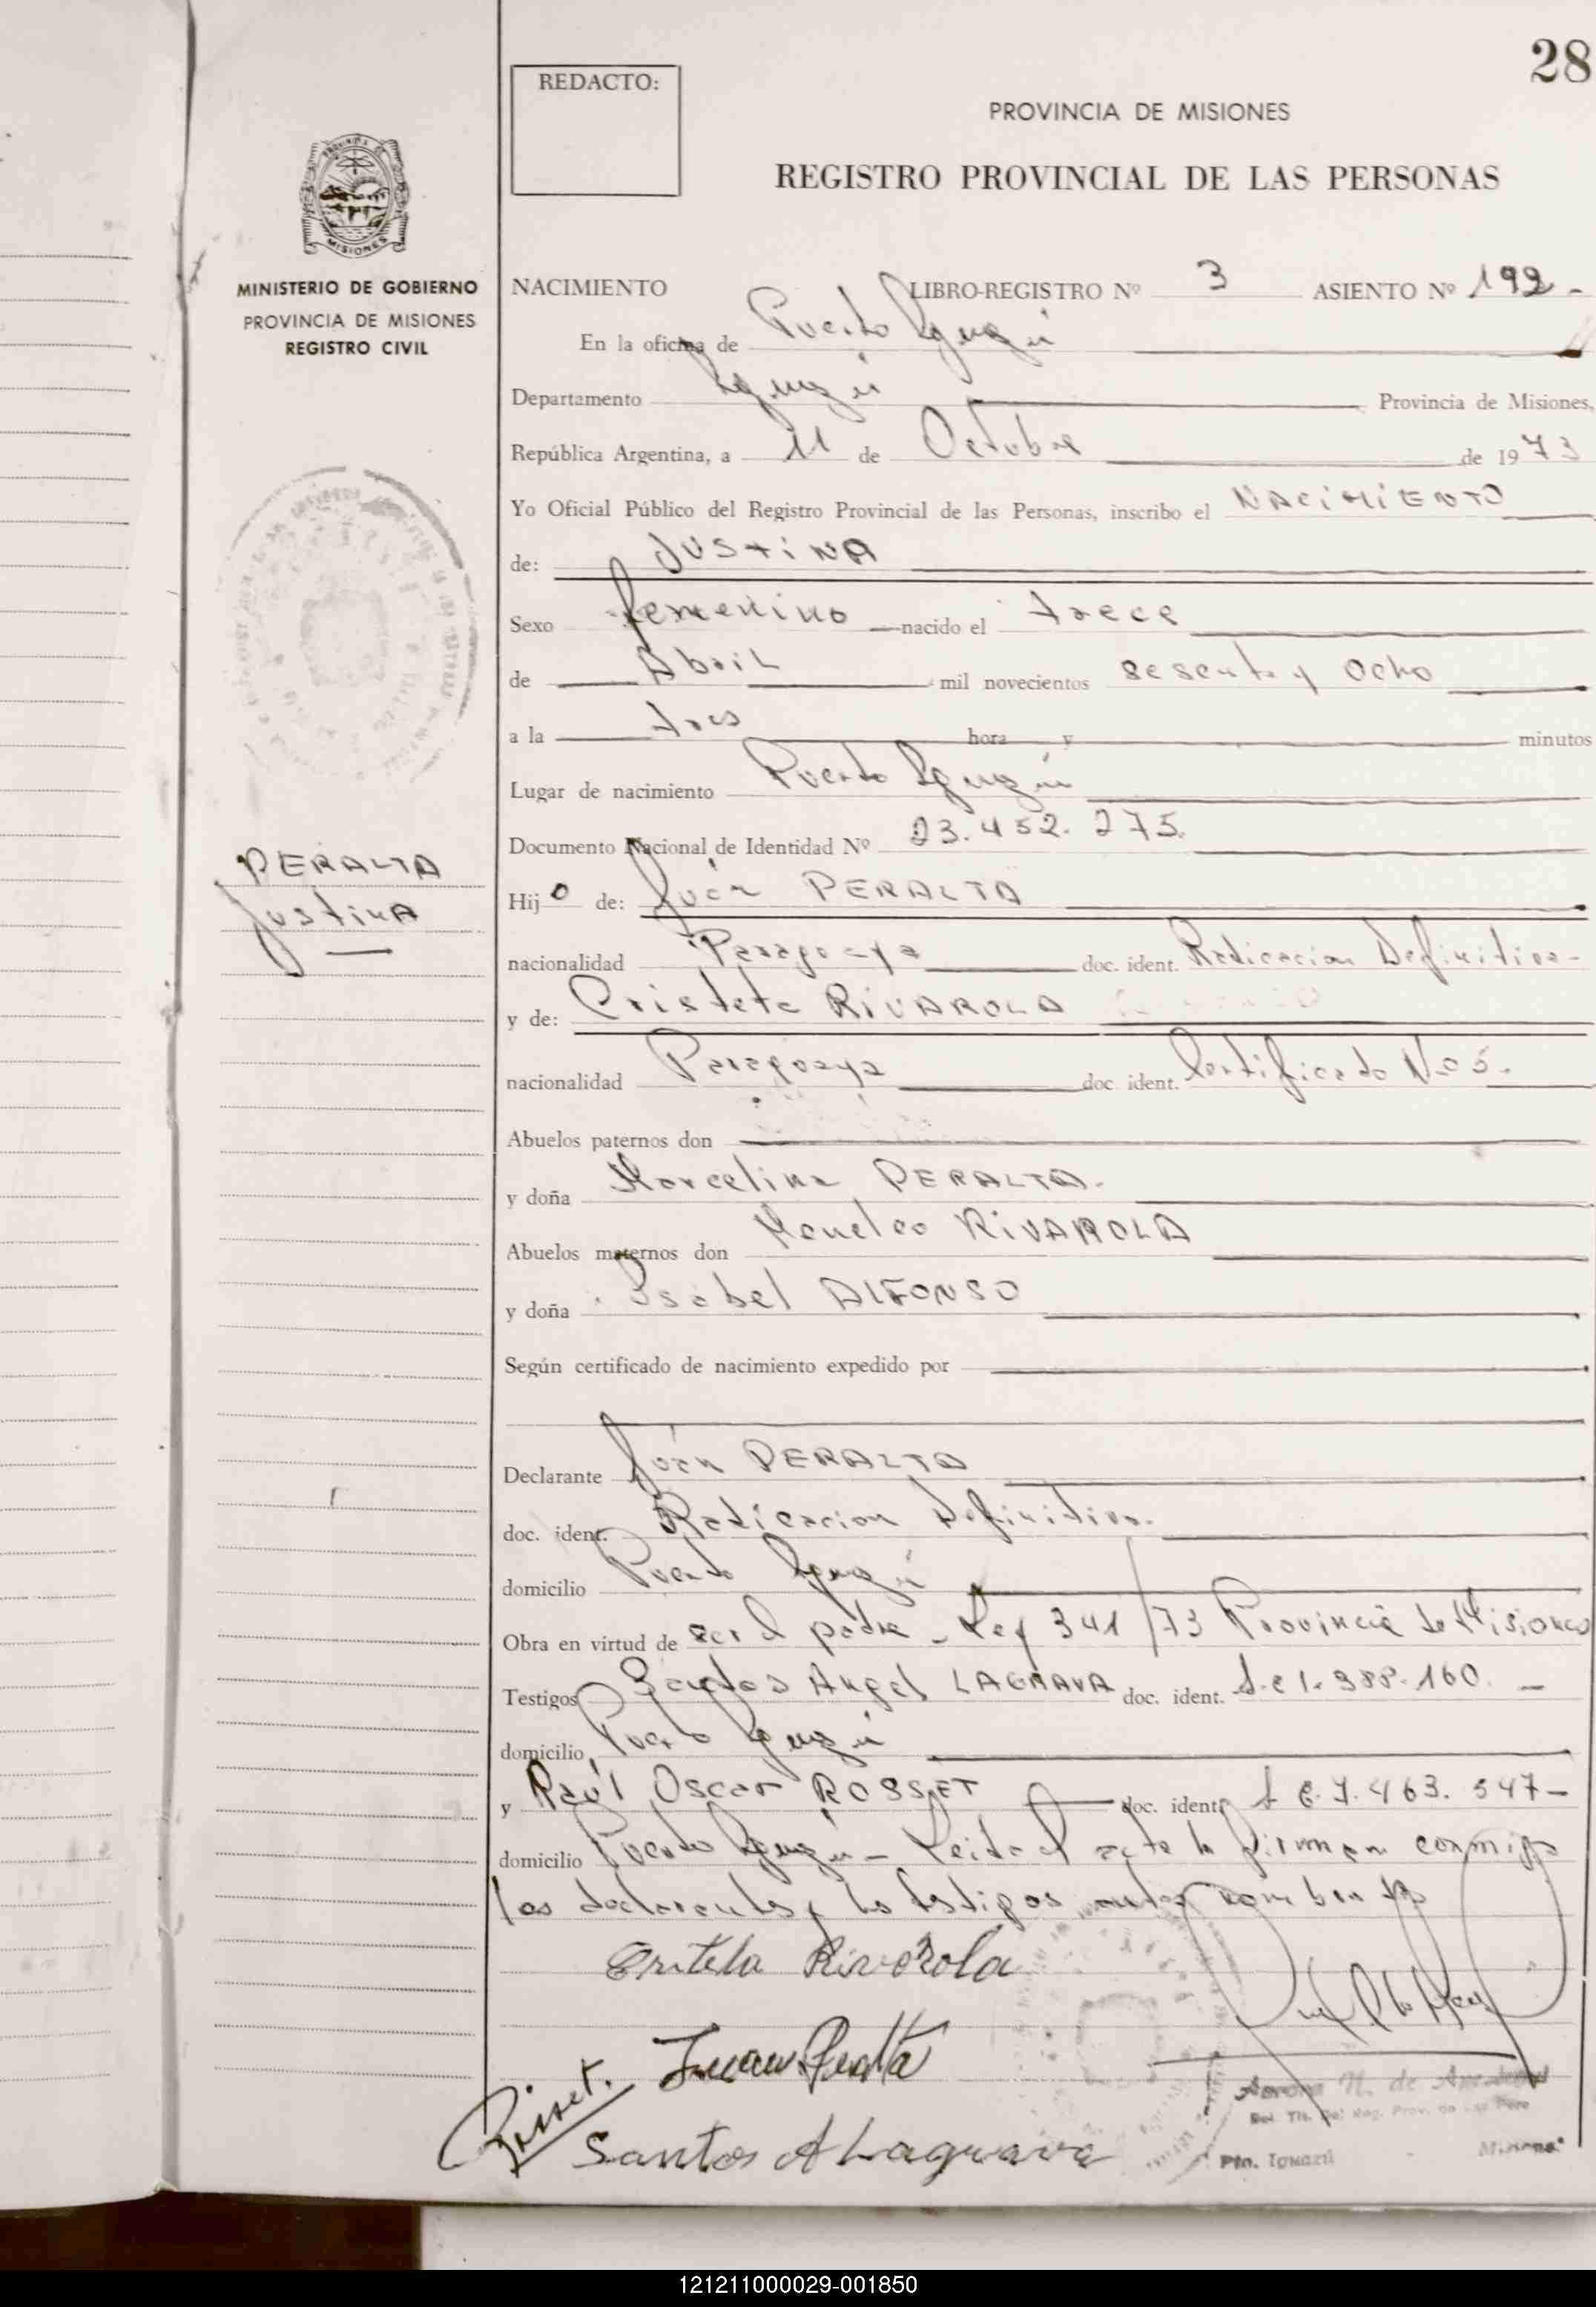 28
REDACTO:
PROVINCIA DE MISIONES
REGISTRO PROVINCIAL DE LAS PERSONAS
MISIONES
MINISTERIO DE GOBIERNO
PROVINCIA DE MISIONES
REGISTRO CIVIL
NACIMIENTO LIBRO-REGISTRO Nº 3 ASIENTO Nº 192-
En la oficina de Puerto Iguazú
Departamento Iguazú Provincia de Misiones,
República Argentina, a 11 de Octubre de 1973
Yo Oficial Público del Registro Provincial de las Personas, inscribo el NACIMIENTO
de: JUSTINA
Sexo femenino nacido el trece
de Abril mil novecientos sesenta y ocho
a la tres hora y minutos
Lugar de nacimiento Puerto Iguazú
Documento Nacional de Identidad Nº 23.452.275.
PERALTA
Justina
Hijo de: Juan PERALTA
nacionalidad Paraguaya doc. ident. Radicacion Definitiva-
y de: Cristeta RIVAROLA
nacionalidad Paraguaya doc. ident. Certificado Nos.
Abuelos paternos don
y doña Marcelina PERALTA.
Abuelos maternos don Meneleo RIVAROLA
y doña Isabel ALFONSO
Según certificado de nacimiento expedido por
Declarante Juan PERALTA
doc. ident. Radicacion Definitiva.
domicilio Puerto Iguazú
Obra en virtud de ser el padre - Ley 341/73 Provincia de Misiones
Testigos Santos Angel LAGRAVA doc. ident. L.E 1.388.160. -
domicilio Puerto Iguazú
y Raúl Oscar ROSSET doc. ident. L E. 7.463.547-
domicilio Puerto Iguazú - Leida el acta la firman conmigo
los declarantes y los testigos antes nombrados
Cristeta Rivarola
Juan Peralta
Rosset.
Santos A Laguava
Pto. Iguazú
Misiones
121211000029-001850